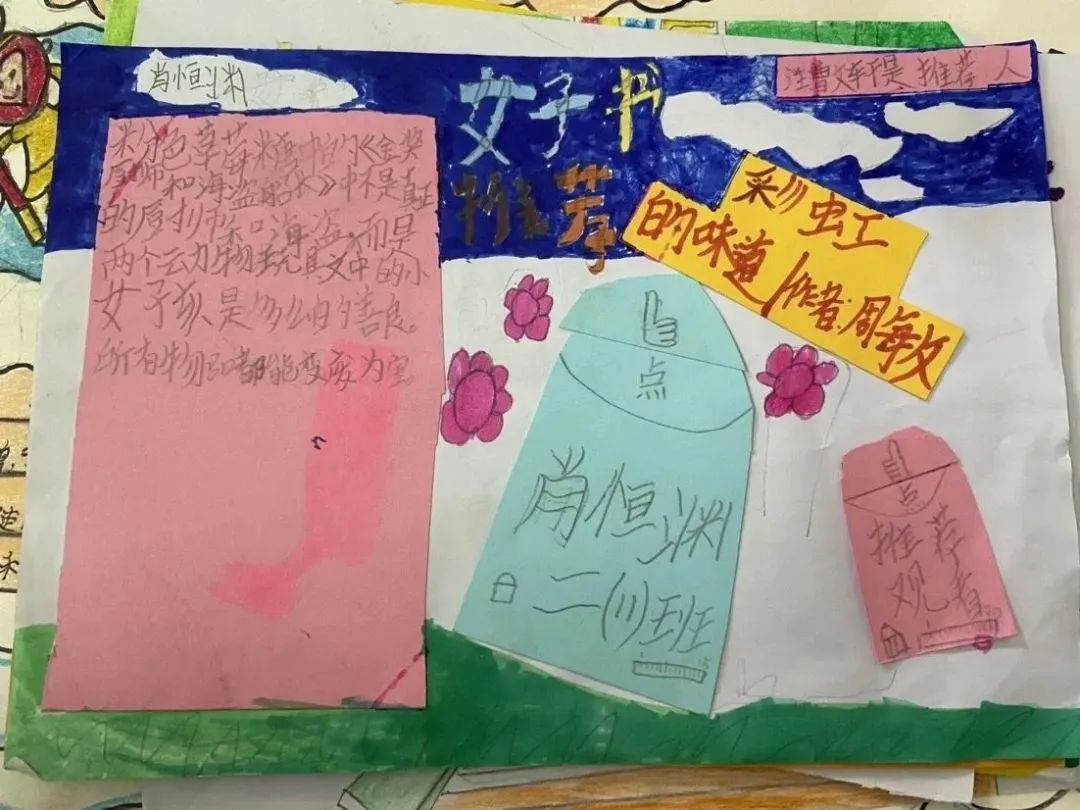 肖恒渊
女子书
推荐
推荐人
彩虹
的味道
作者:周敏
粉色草莓蛋中的《金奖
厨师和海盗船长》中不是真正
的厨师和海盗。而是
两个动物玩具文中的小
女子孩、是多么的善良。
所有物品都能变废为宝。
点
肖恒渊
二(1)班
点
推荐
观看